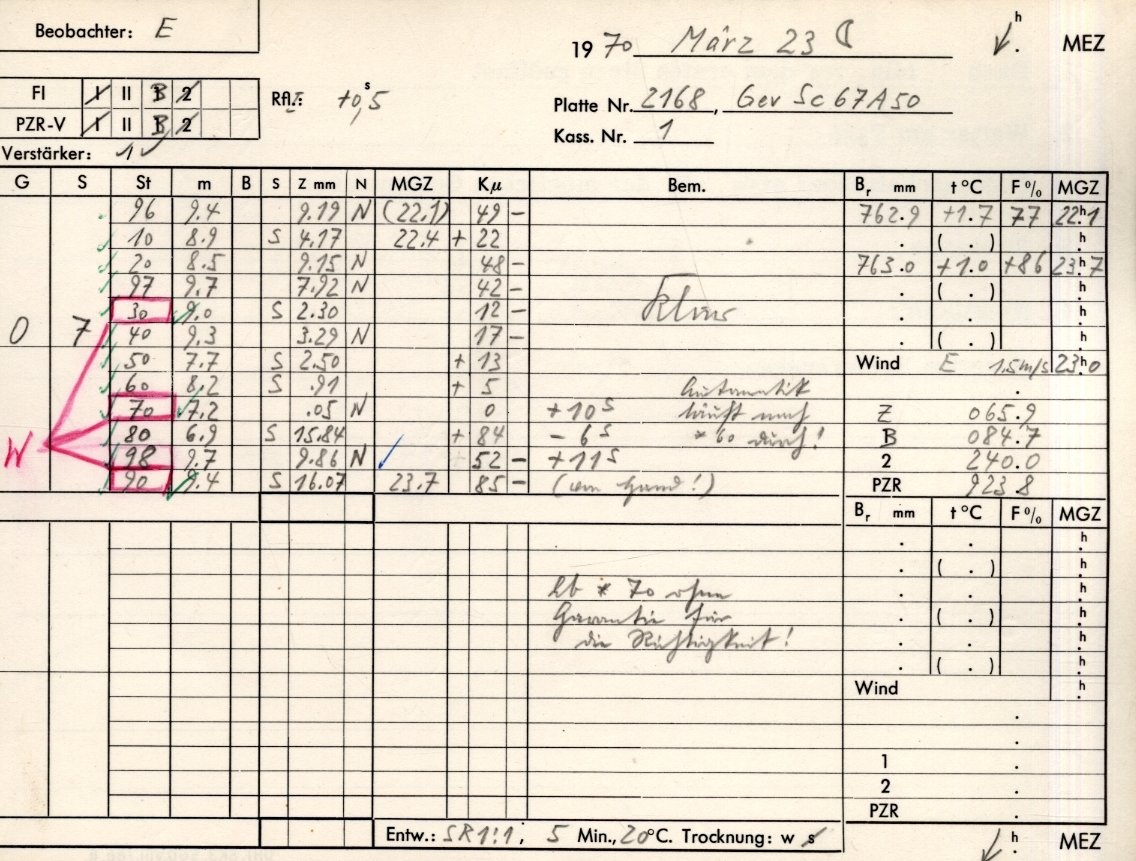 Beobachter: E
1970 März 23 ☾ h . MEZ
FI I II B 2
PZR-V I II B 2
Rfl.: +0,5 s
Platte Nr. 2168, Gev Sc 67A50
Kass. Nr. 1
Verstärker: 1
G S St m B S Z mm N MGZ Kμ Bem. Br mm t °C F % MGZ
96 9.4 9.19 N (22.1) 49 - 762.9 +1.7 77 22h.1
10 8.9 S 4.17 22.4 + 22 . ( . ) h.
20 8.5 9.15 N 48 - 763.0 +1.0 +86 23h.7
97 9.7 7.92 N 42 - . ( . ) h.
30 9.0 S 2.30 12 - Klar . . h.
0 7 40 9.3 3.29 N 17 - . ( . ) h.
50 7.7 S 2.50 + 13 Wind E 1.5 m/s 23h.0
60 8.2 S .91 + 5 Automatik .
70 7.2 .05 N 0 +10s läuft nach Z 065.9
80 6.9 S 15.84 + 84 - 6s * 60 durch! B 084.7
W 98 9.7 9.86 N 52 - +11s 2 240.0
90 9.4 S 16.07 23.7 85 - (von Hand!) PZR 923.8
Br mm t °C F % MGZ
. . h.
. ( . ) h.
Ab * 70 ohne . . h.
Garantie für . ( . ) h.
die Richtigkeit! . . h.
. ( . ) h.
Wind h.
.
.
1 .
2 .
PZR .
Entw.: SR1:1, 5 Min., 20°C. Trocknung: w s h . MEZ